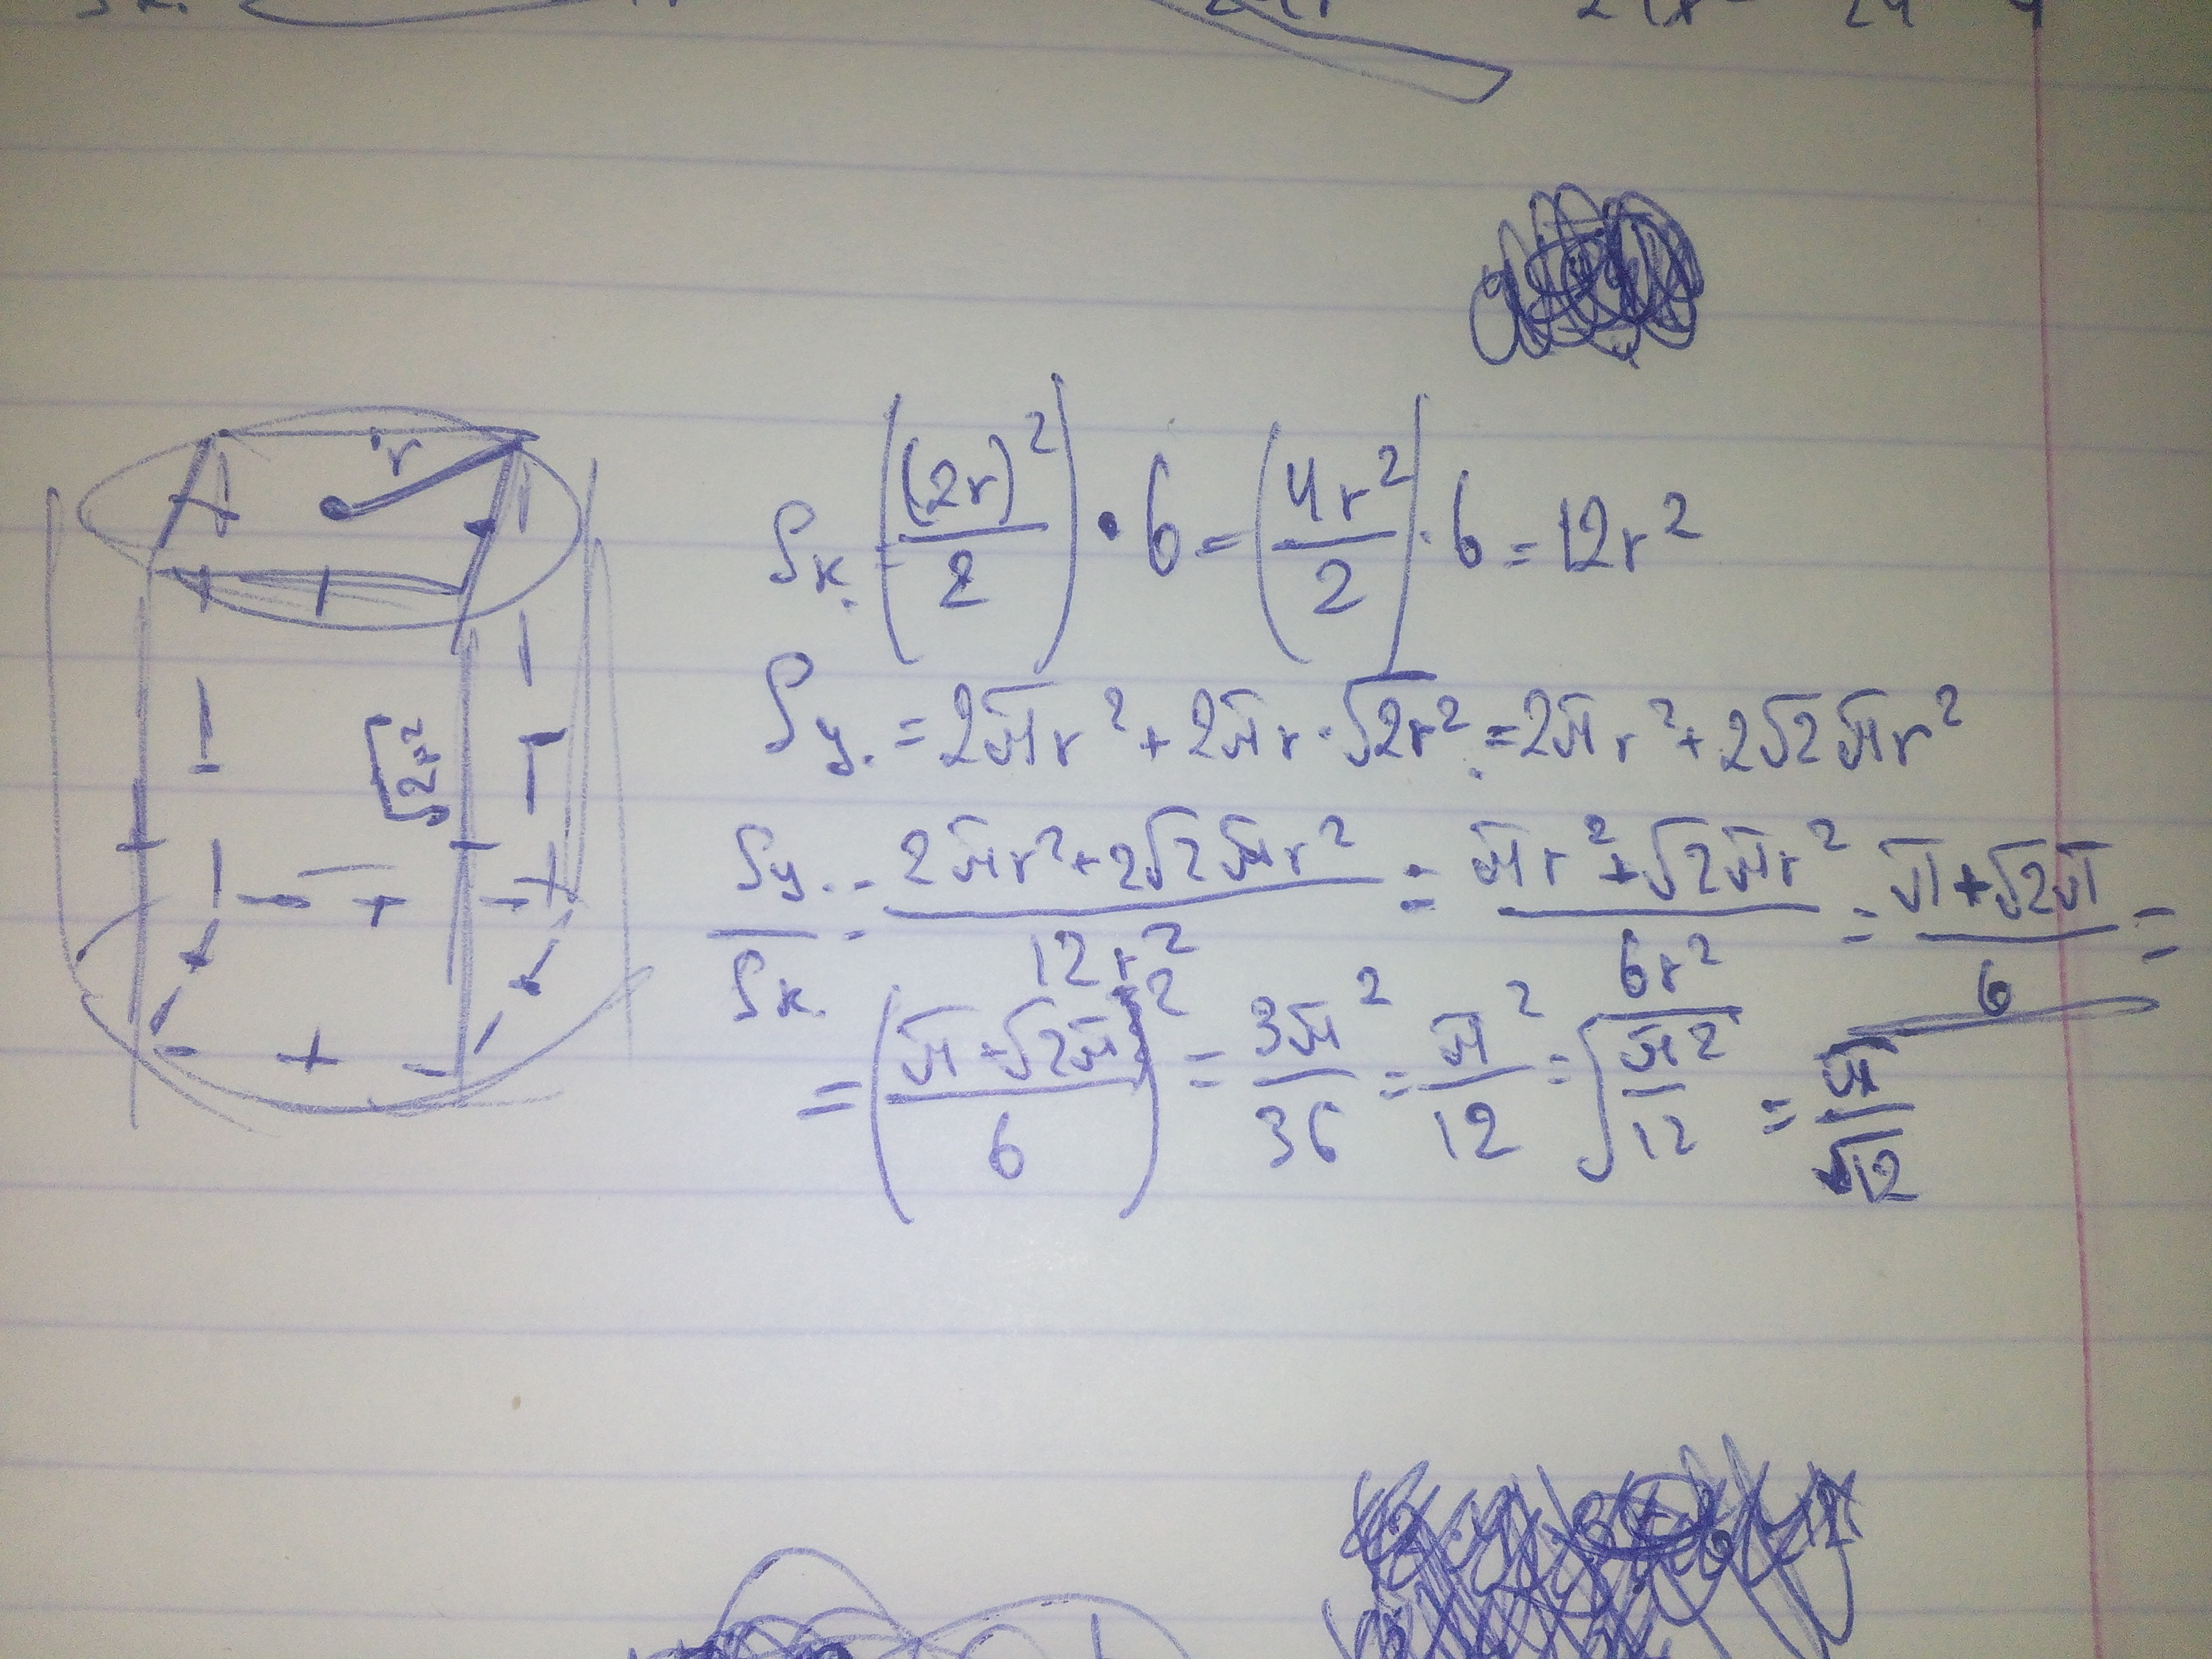 r
√2r²
Sк. = ((2r)²/2) · 6 = (4r²/2) · 6 = 12r²
Sу. = 2πr² + 2πr · √2r² = 2πr² + 2√2πr²
Sу./Sк. = (2πr² + 2√2πr²)/12r² = (πr² + √2πr²)/6r² = (π + √2π)/6 =
= ((π + √2π)/6)² = 3π²/36 = π²/12 = √(π²/12) = π/√12